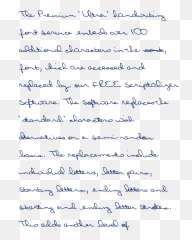 The Premium 'Ultra' handwriting
font service embeds over 100
additional characters in the
font, which are accessed and
replaced by our FREE Scriptalizer
Software. The Software replaces the
'standard' characters with
alternatives on a semi-random
basis. The replacements include
individual letters, letter pairs,
starting letters, ending letters and
starting and ending letter strokes.
This adds another level of